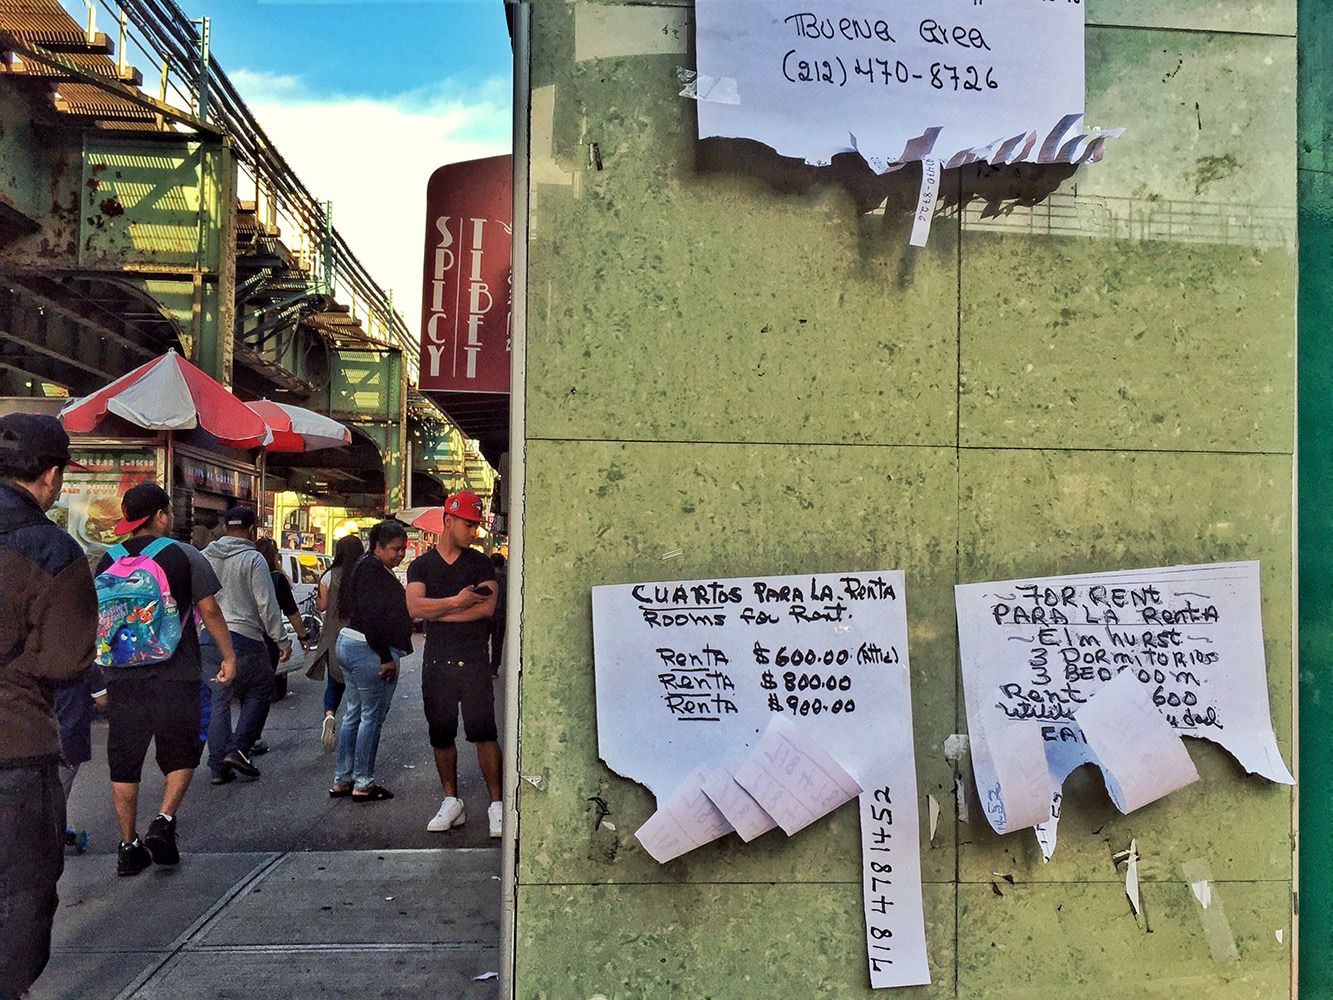 Buena area
(212) 470-8726
0470-8726
SPICY
TIBET
CUARTOS PARA LA Renta
Rooms for Rent.
Renta $600.00 (Attic)
Renta $800.00
Renta $900.00
718 4781452
FOR RENT
PARA LA RENTA
~ Elmhurst ~
3 DORMITORIOS
3
Rent 600